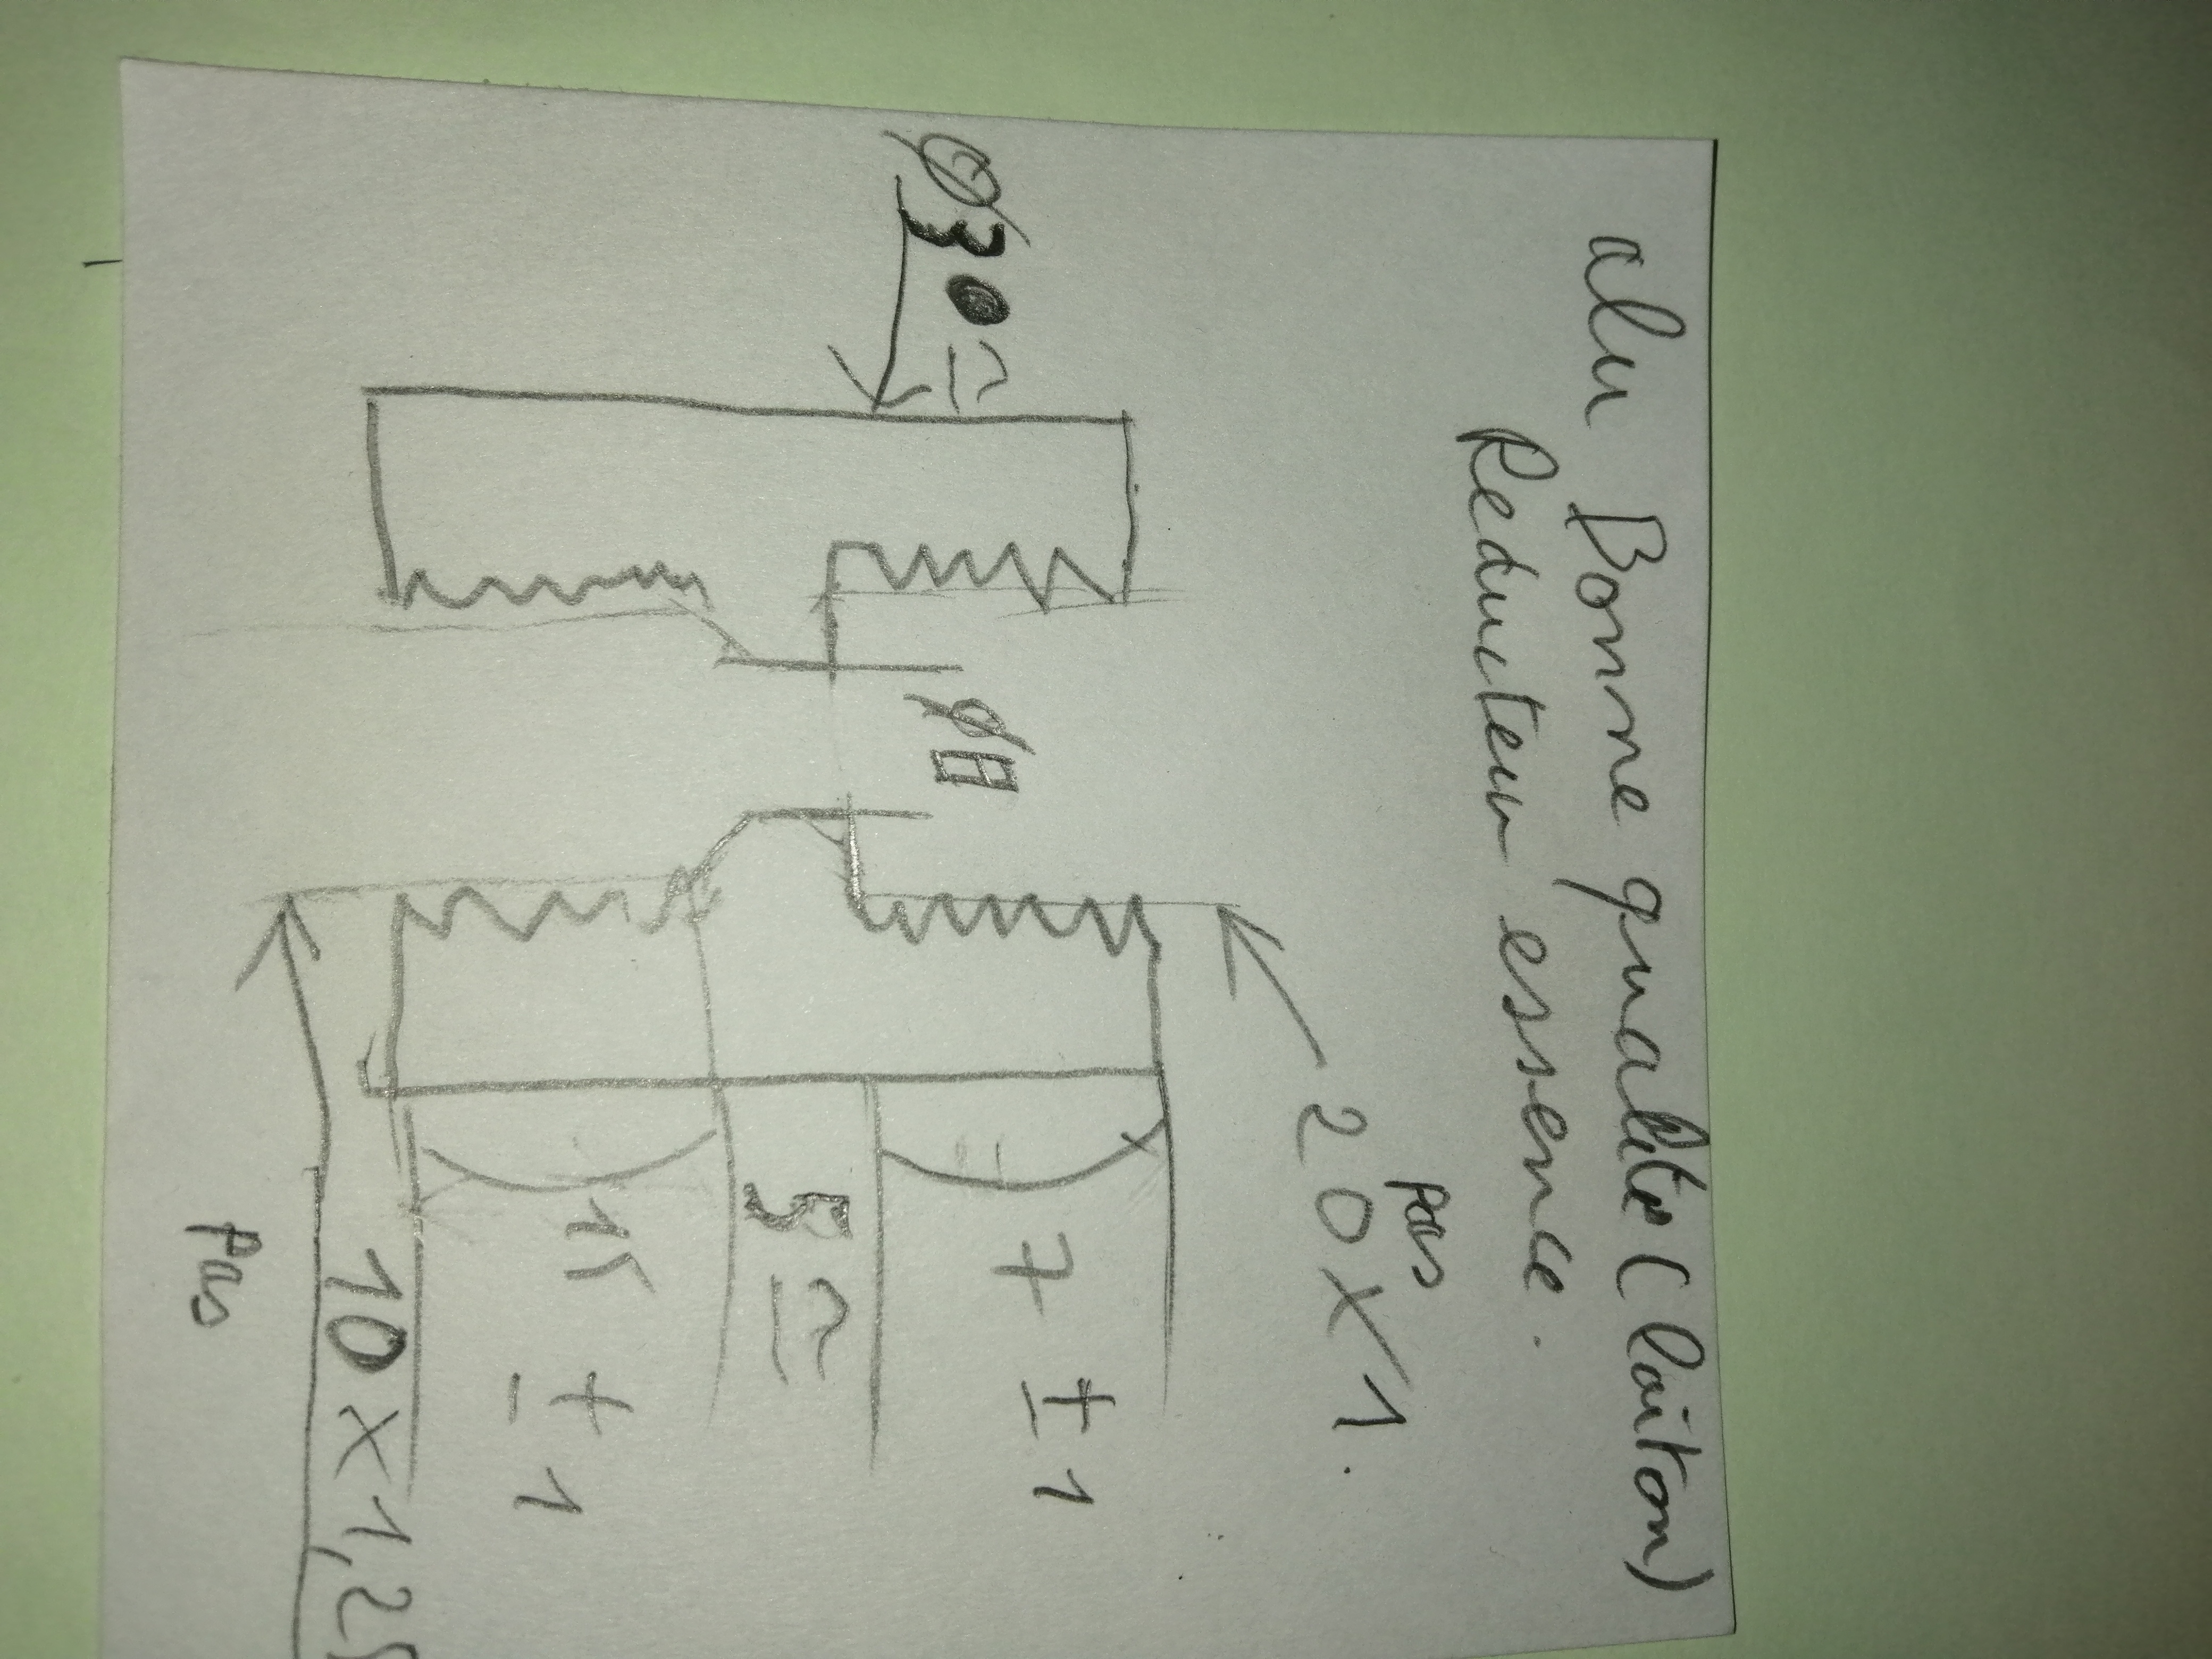 alu Bonne qualité (laiton)
Reducteur essence.
pas
20 X 1.
Ø30 =
7 ± 1
Ø8
5 =
15 ± 1
10 X 1,25
Pas